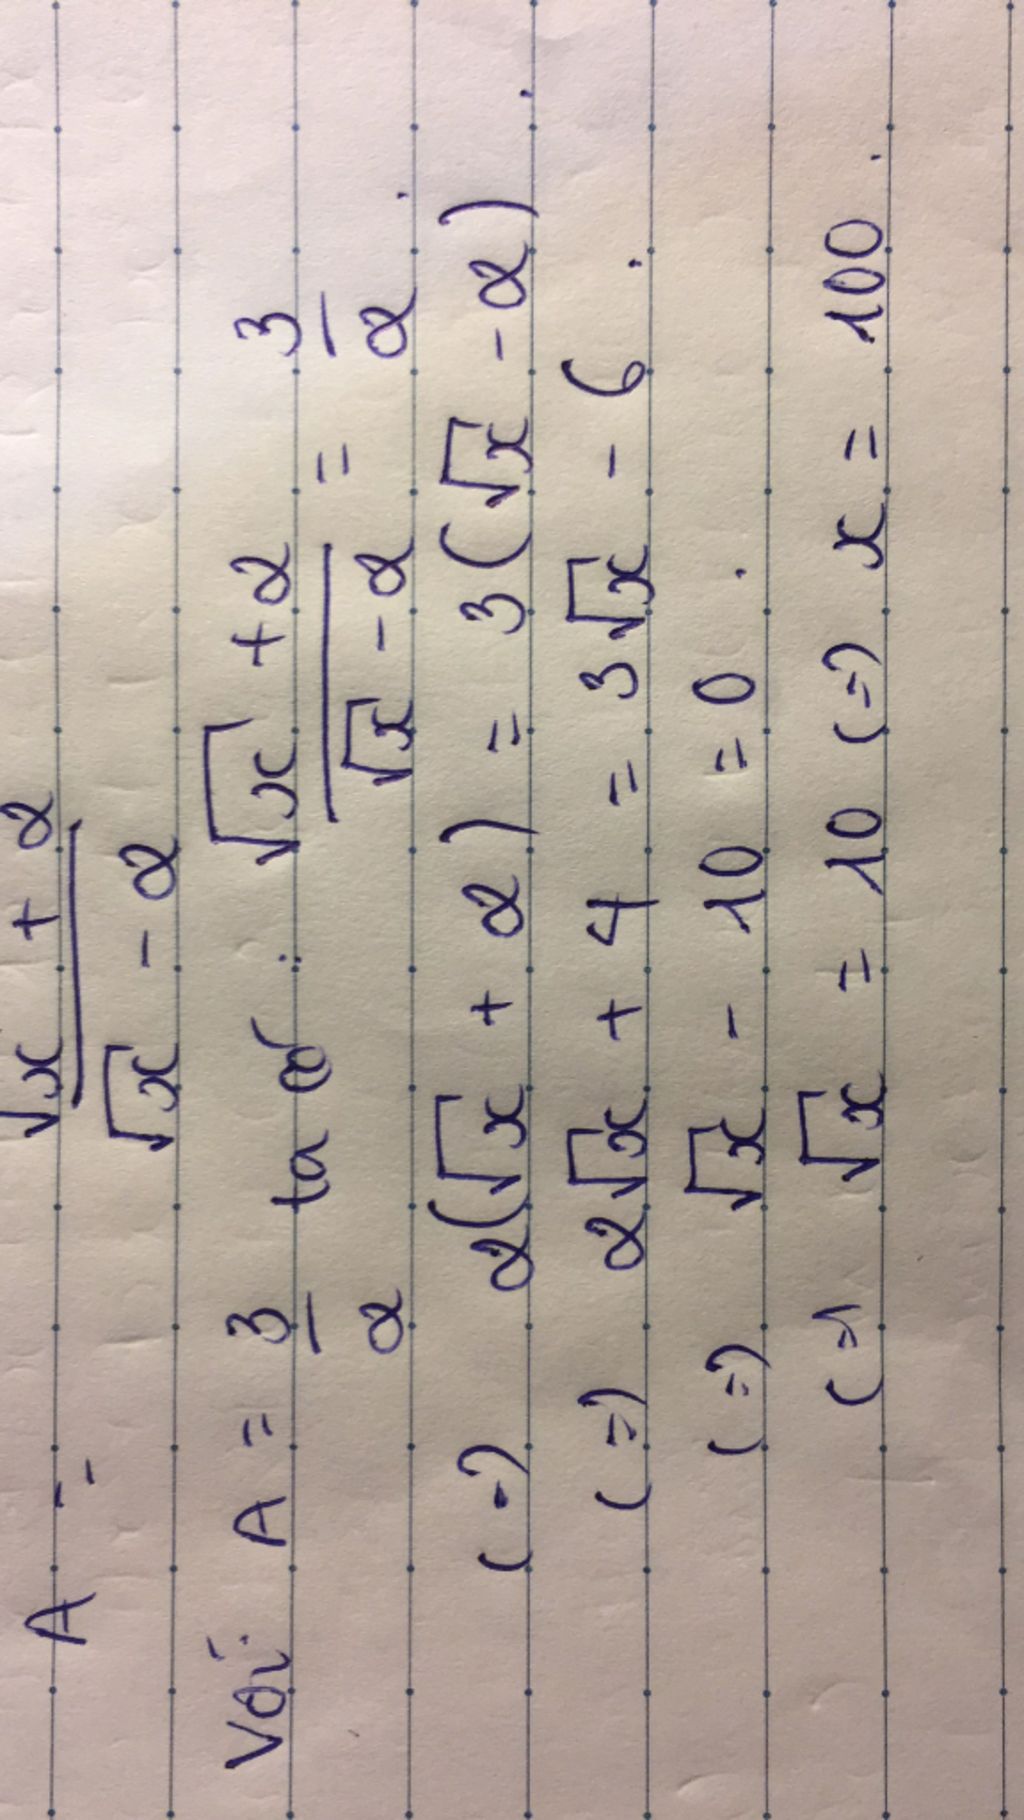 A = (√x + 2)/(√x - 2)
Với A = 3/2 ta có: (√x + 2)/(√x - 2) = 3/2 .
(=) 2(√x + 2) = 3(√x - 2) .
(=) 2√x + 4 = 3√x - 6 .
(=) √x - 10 = 0 .
(=) √x = 10 (=) x = 100 .